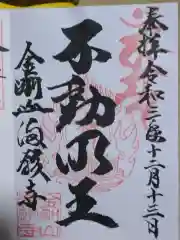 奉拝 令和三 十二月十三日
不動明王
金剛山 寺